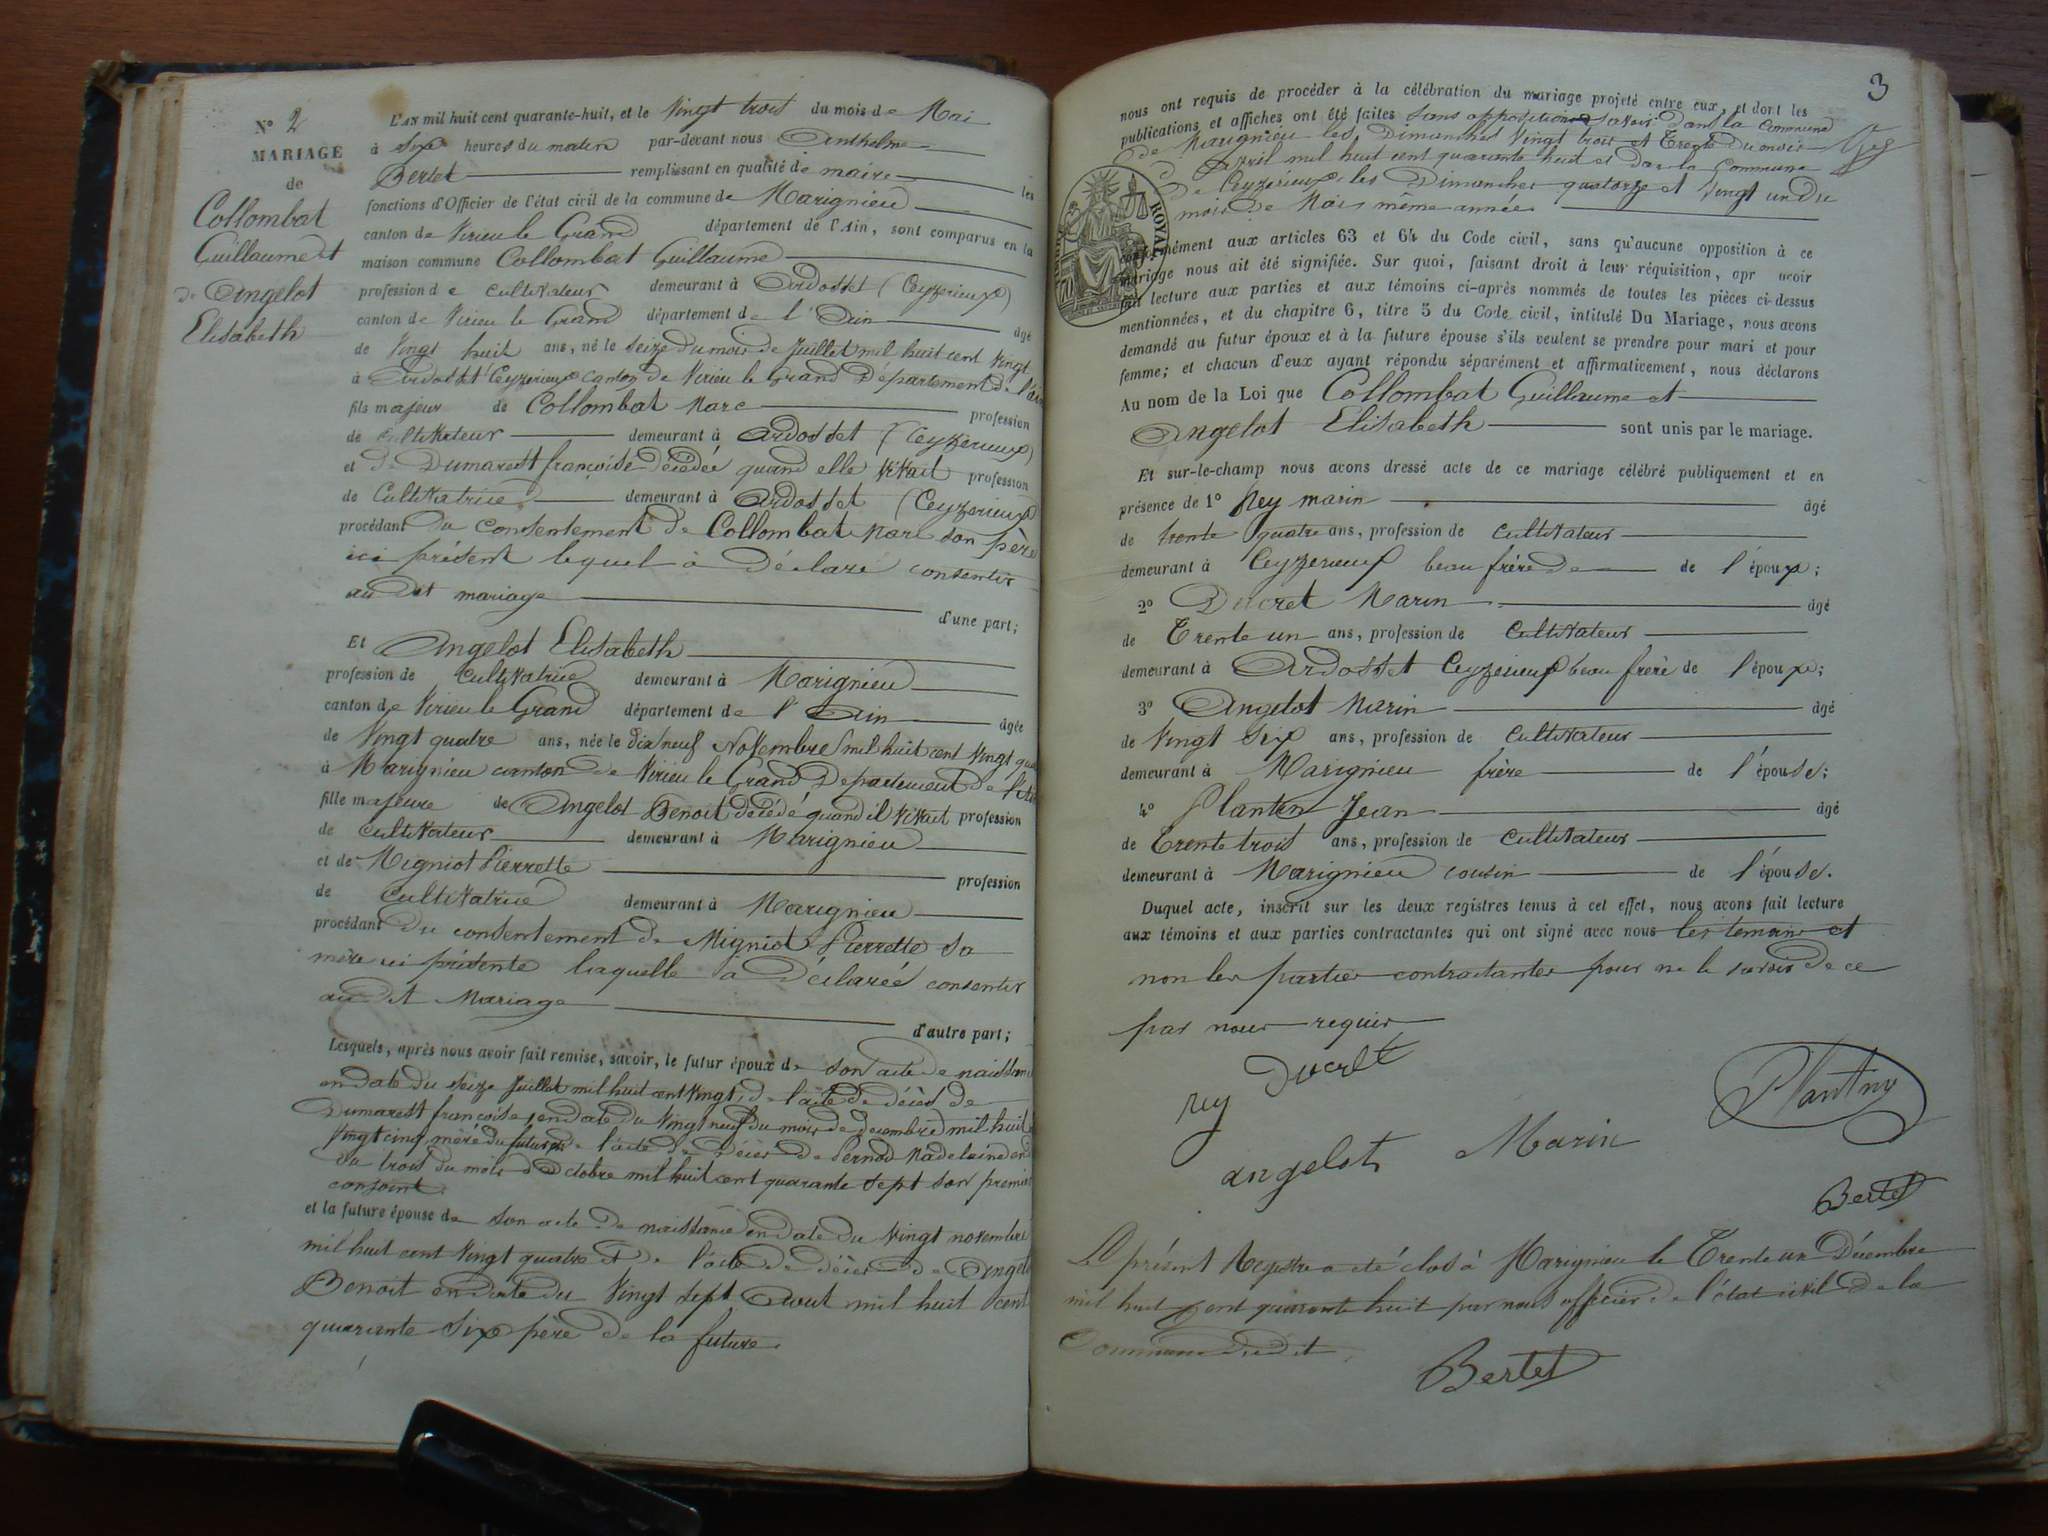 Nº 2
MARIAGE
de
Collombat
Guillaume et
de Angelot
Elisabeth
L'AN mil huit cent quarante-huit, et le Vingt trois du mois de Mai
à Six heures du matin par-devant nous Anthelme
Bertet remplissant en qualité de maire les
fonctions d'Officier de l'état civil de la commune de Marignieu
canton de Virieu le Grand département de l'Ain, sont comparus en la
maison commune Collombat Guillaume
profession de cultivateur demeurant à Ardosset (Ceyzerieux)
canton de Virieu le Grand département de l'Ain âgé
de Vingt huit ans, né le Seize du mois de Juillet mil huit cent Vingt
à Ardosset Ceyzerieux canton de Virieu le Grand Département de l'Ain
fils majeur de Collombat Marc profession
de cultivateur demeurant à Ardosset (Ceyzerieux)
et de Dumarest françoise décédée quand elle vivait profession
de Cultivatrice demeurant à Ardosset (Ceyzerieux)
procédant du consentement de Collombat Marc son père
ici présent lequel à déclaré consentir
au dit mariage d'une part;
Et Angelot Elisabeth
profession de cultivatrice demeurant à Marignieu
canton de Virieu le Grand département de l'Ain âgée
de Vingt quatre ans, née le Dix neuf Novembre mil huit cent Vingt
à Marignieu canton de Virieu le Grand Département de l'Ain
fille majeure de Angelot Benoit décédé quand il vivait profession
de cultivateur demeurant à Marignieu
et de Migniot Pierrette profession
de cultivatrice demeurant à Marignieu
procédant du consentement de Migniot Pierrette sa
mère ici présente laquelle à déclarée consentir
au dit Mariage d'autre part;
Lesquels, après nous avoir fait remise, savoir, le futur époux de son acte de naissance
en date du seize Juillet mil huit cent vingt, de l'acte de décès de
Dumarest françoise, en date du Vingt neuf du mois de decembre mil huit
Vingt cinq mère du futur de l'acte de décès de Pernod Madelaine en
du trois du mois d'octobre mil huit cent quarante sept son premier
conjoint
et la future épouse de son acte de naissance en date du vingt novembre
mil huit cent vingt quatre et de l'acte de décès de Angelot
Benoit en date du Vingt sept Aout mil huit cent
quarante Six père de la future.
3
nous ont requis de procéder à la célébration du mariage projeté entre eux, et dont les
publications et affiches ont été faites sans opposition savoir dans la Commune
de Marignieu les Dimanches Vingt trois et Trente du mois
d'Avril mil huit cent quarante huit et dans la Commune
de Ceyzerieux les Dimanches quatorze et Vingt un du
mois de Mai même année
ROYAL
conformément aux articles 63 et 64 du Code civil, sans qu'aucune opposition à ce
mariage nous ait été signifiée. Sur quoi, faisant droit à leur réquisition, apr avoir
fait lecture aux parties et aux témoins ci-après nommés de toutes les pièces ci-dessus
mentionnées, et du chapitre 6, titre 5 du Code civil, intitulé Du Mariage, nous avons
demandé au futur époux et à la future épouse s'ils veulent se prendre pour mari et pour
femme; et chacun d'eux ayant répondu séparément et affirmativement, nous déclarons
Au nom de la Loi que Collombat Guillaume et
Angelot Elisabeth sont unis par le mariage.
Et sur-le-champ nous avons dressé acte de ce mariage célébré publiquement et en
présence de 1º Rey marin âgé
de trente quatre ans, profession de cultivateur
demeurant à Ceyzerieux beau frère de de l'époux;
2º Ducret Marin âgé
de Trente un ans, profession de cultivateur
demeurant à Ardosset Ceyzerieux beau frère de l'époux;
3º Angelot Marin âgé
de Vingt Six ans, profession de cultivateur
demeurant à Marignieu frère de l'épouse;
4º Plantin Jean âgé
de Trente trois ans, profession de cultivateur
demeurant à Marignieu cousin de l'épouse.
Duquel acte, inscrit sur les deux registres tenus à cet effet, nous avons fait lecture
aux témoins et aux parties contractantes qui ont signé avec nous les temoins et
non les parties contractantes pour ne le savoir de ce
par nous requis
Ducret
rey
Plantny
angelot Marin
Bertet
Le présent Registre a été clos à Marignieu le Trente un Décembre
mil huit cent quarante huit par nous officier de l'état civil de la
Commune dudit
Bertet